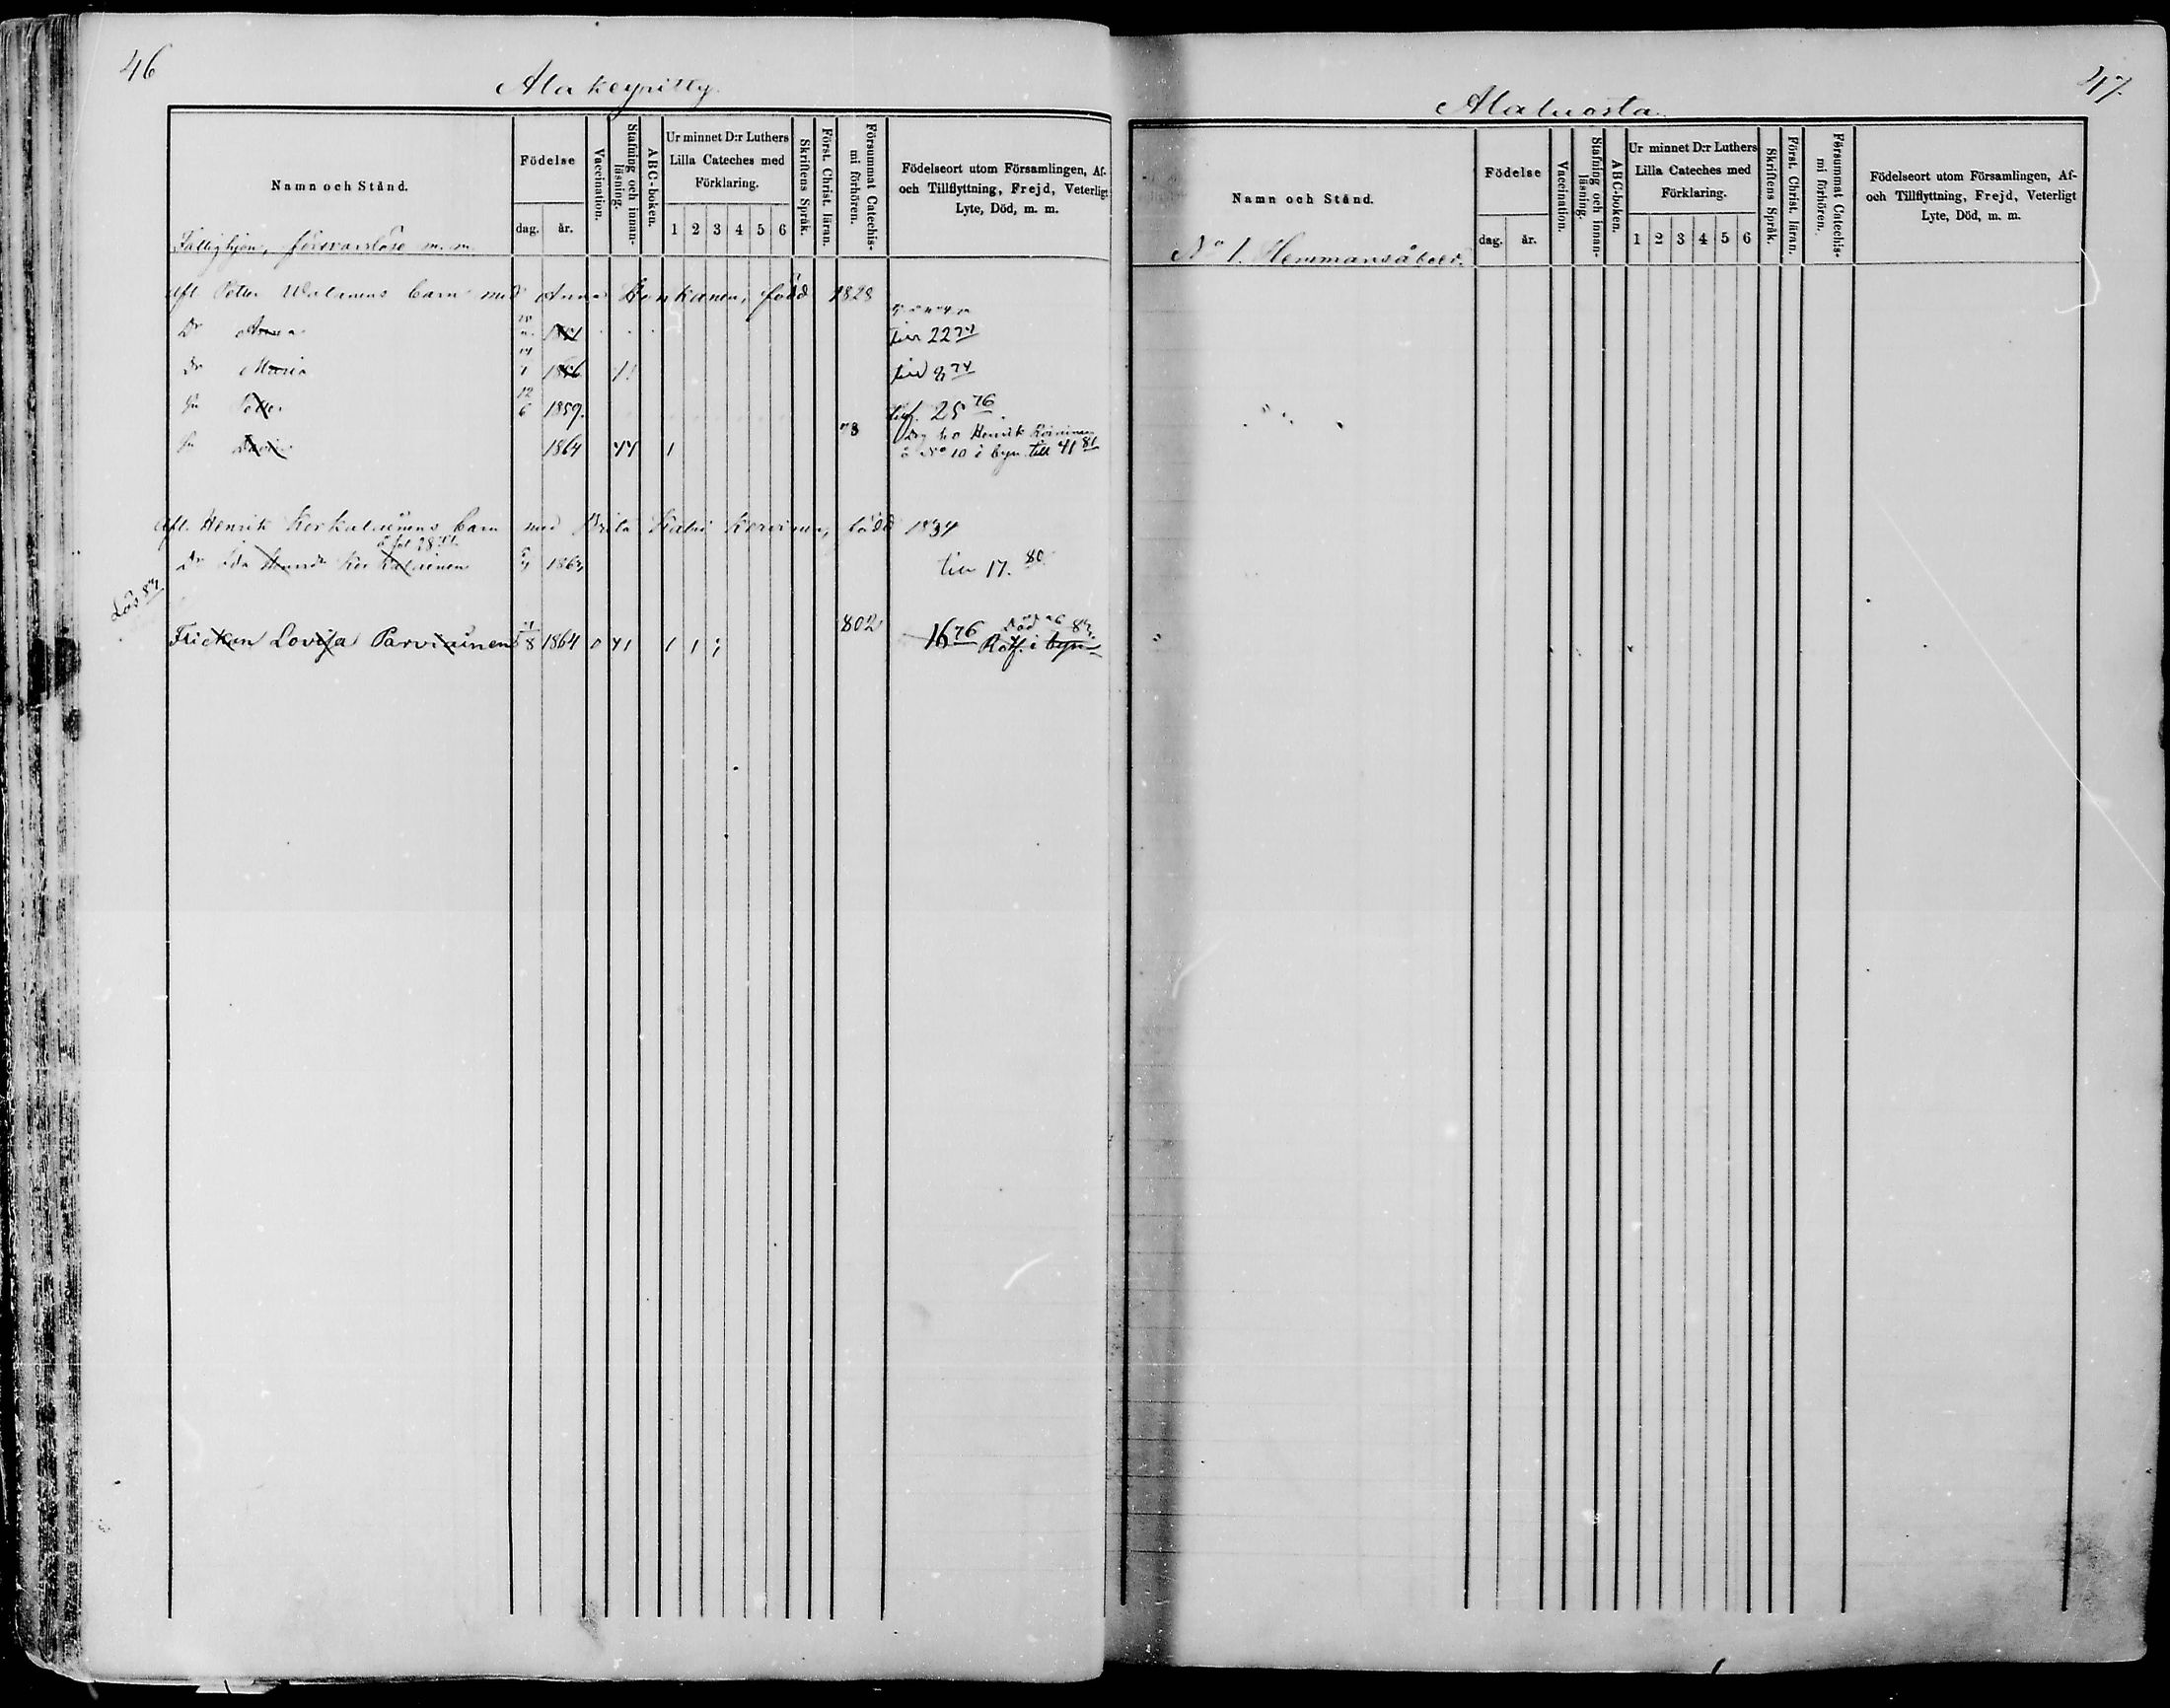 46
Alakeyritty.
Namn och Stånd.
Födelse
dag.
år.
Vaccination.
Stafning och innan-
läsning.
ABC-boken.
Ur minnet D:r Luthers
Lilla Cateches med
Förklaring.
1 2 3 4 5 6
Skriftens Språk.
Först. Christ. läran.
Försummat Catechis-
mi förhören.
Födelseort utom Församlingen, Af-
och Tillflyttning, Frejd, Veterligt
Lyte, Död, m. m.
Fattighjon, försvarslöse m. m.
Afl. Petter barn med Anna född 1828
Dr Anna till 22 74
Dr Maria 8 74
Sn Petter 12 6 1859. 25 76
Sn 1864 1 78 Henrik
å No 10 i byn. till 41 81
Afl. Henrik barn med Brita född 1834
Dr Ida 186 17. 80
Läs 87
Lovisa Parviainen 8 1864 0 1 1 802 16 76 Död 87.
Rotf. i byn
47.
Alaluosta.
Namn och Stånd.
Födelse
dag.
år.
Vaccination.
Stafning och innan-
läsning.
ABC-boken.
Ur minnet D:r Luthers
Lilla Cateches med
Förklaring.
1 2 3 4 5 6
Skriftens Språk.
Först. Christ. läran.
Försummat Catechis-
mi förhören.
Födelseort utom Församlingen, Af-
och Tillflyttning, Frejd, Veterligt
Lyte, Död, m. m.
No 1. Hemmansåboer.